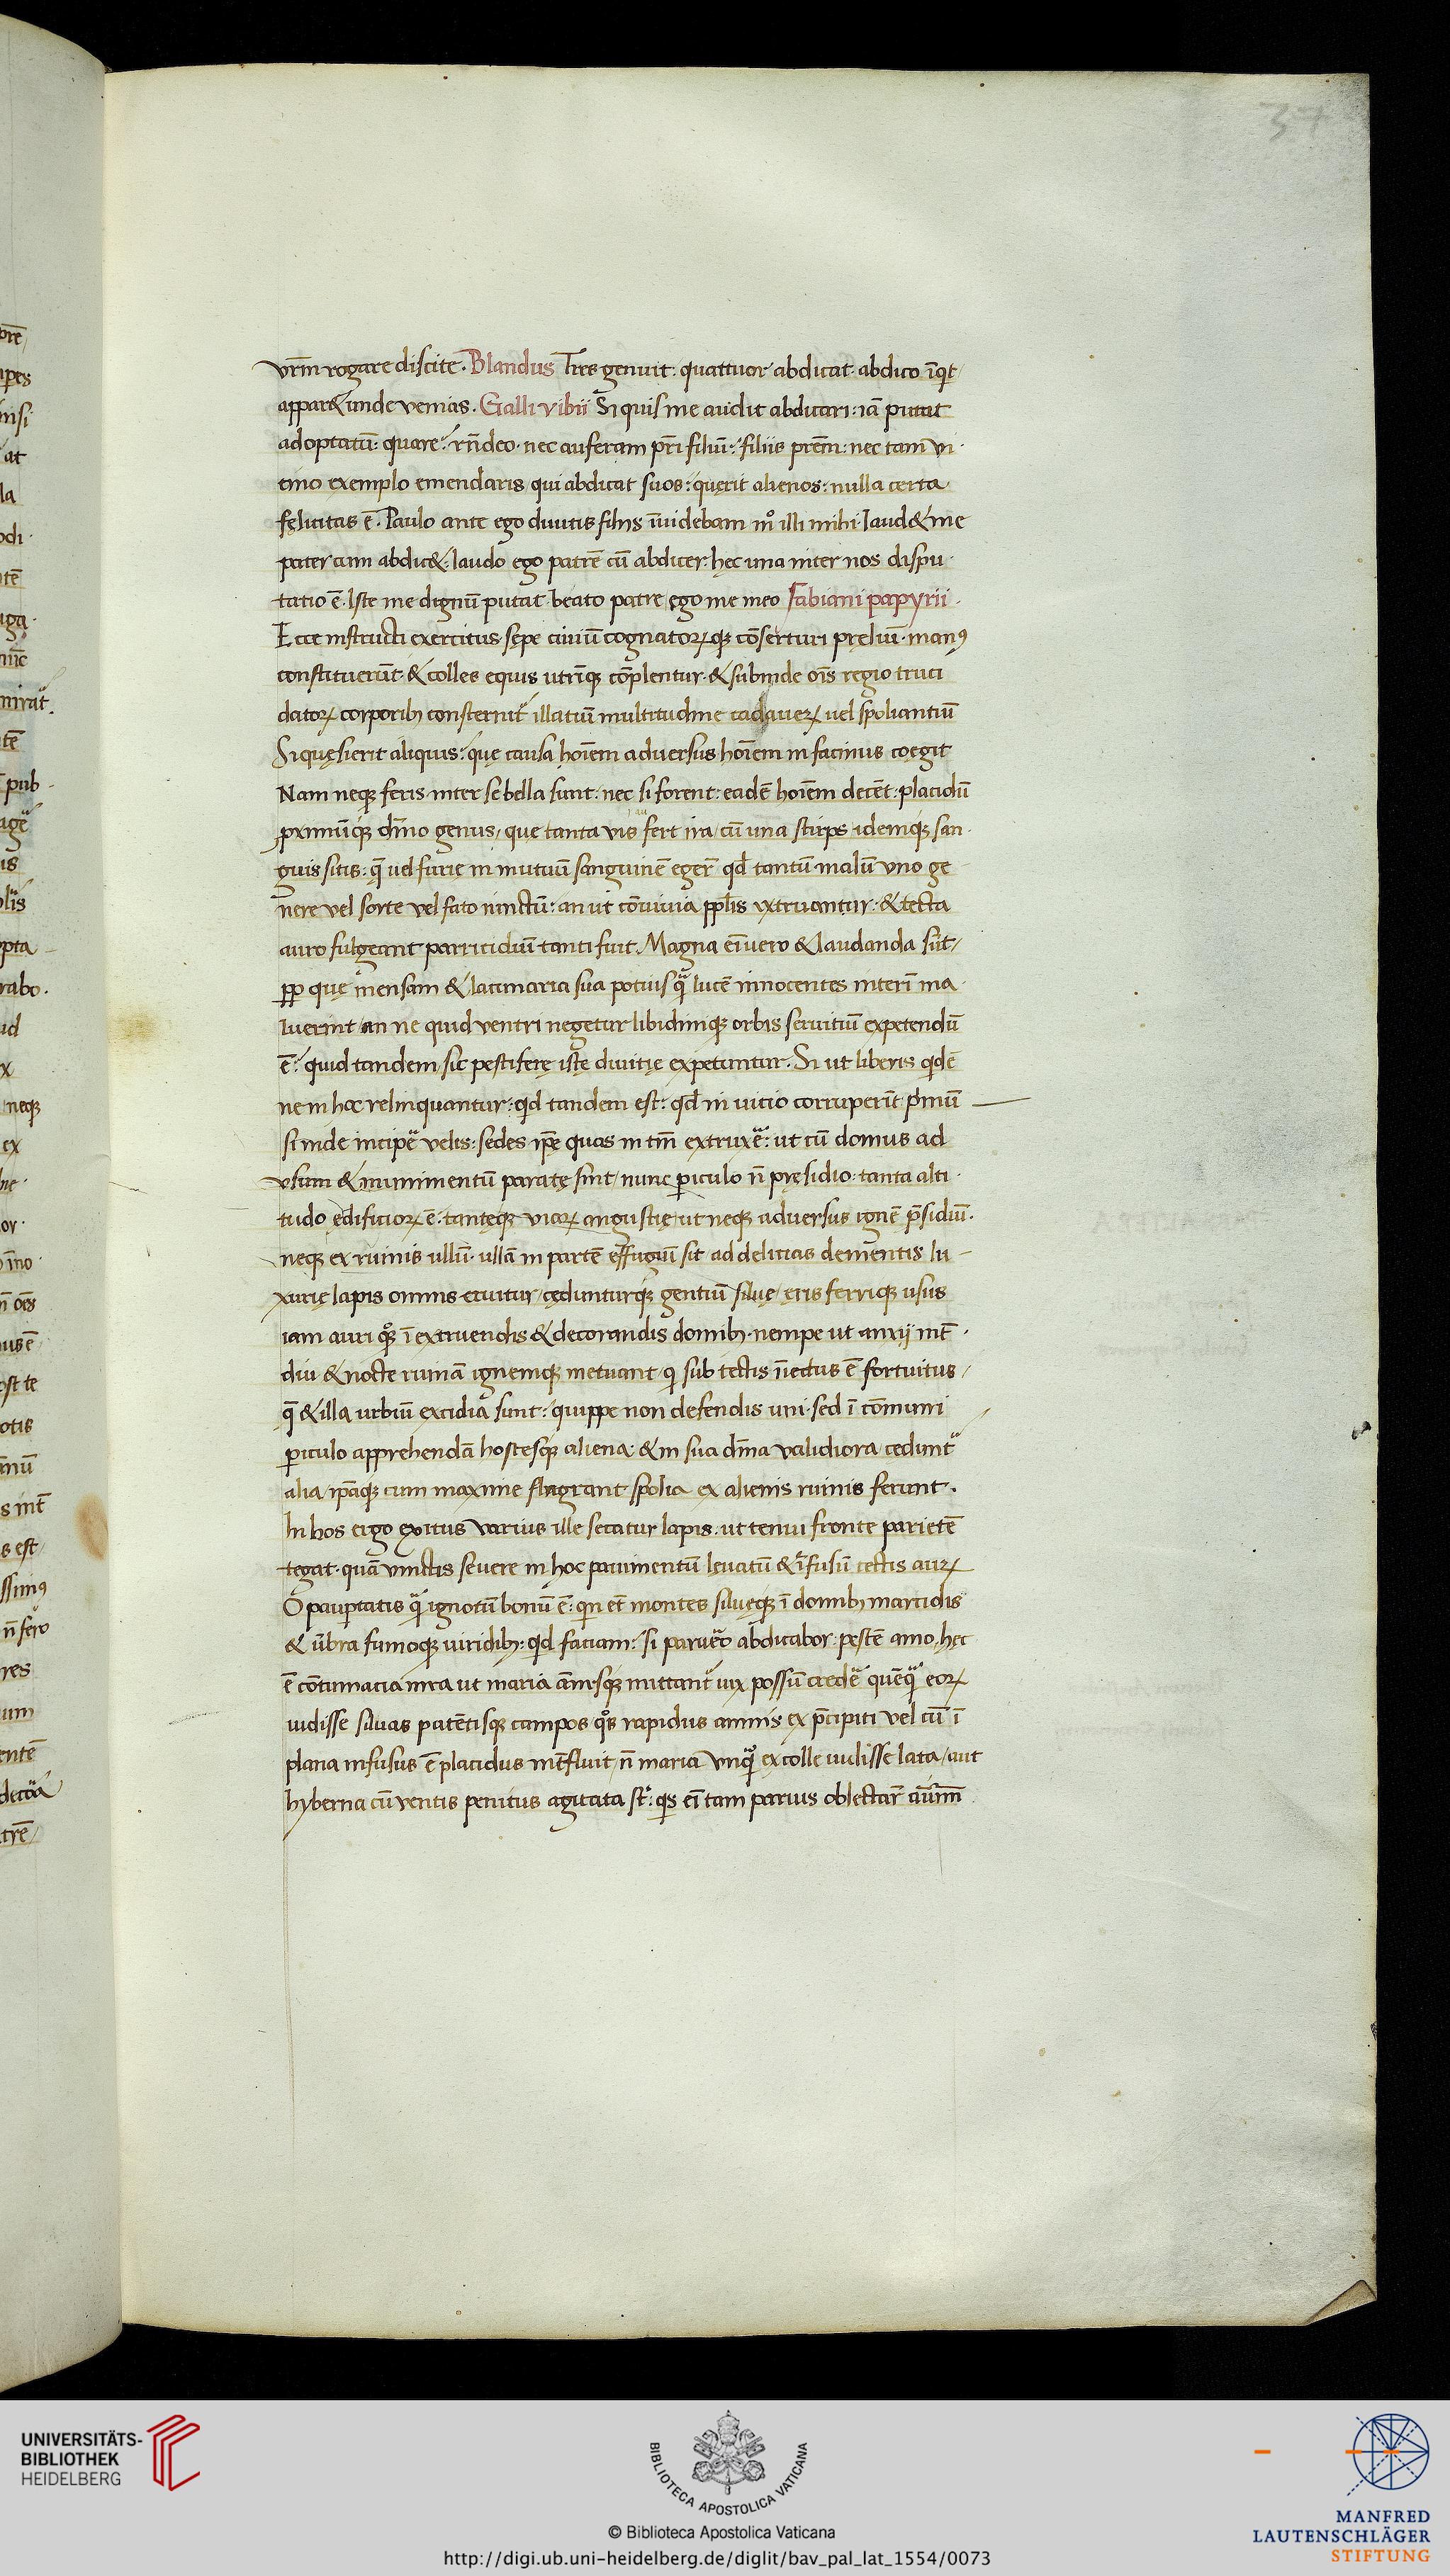 37
vr̄m rogare discite. Blandus Tres genuit: quattuor abdicat abdico īqt
appar& unde venias. Galli vibii Si quis me audit abdicari: iā putat
adoptatū: quare? rn̄deo. nec auferam pr̄i filiū: filiis prēm: nec tam vi
cino exemplo emendaris qui abdicat suos: quęrit alienos: nulla certa
fęlicitas ē. Paulo ante ego divitis filiis īuidebam mº illi mihi. laud& me
pater cum abdic&: laudo ego patrē cū abdicer: hęc una inter nos dispu
tatio ē. Iste me dignū putat beato patre ego me meo Fabiani papyrii
Ecce instructi exercitus sępe ciuiū cognatorꝝ qꝫ cōserturi pręliū. manꝰ
constituerūt & colles equis utrīqꝫ cōplentur & subinde oīs regio truci
datorꝝ corporibꝫ consternit illatiū multitudine cadauerꝝ uel spoliantiū
Si quęsierit aliquis: quę causa hoīem adversus hoīem in facinus coegit
Nam neqꝫ feris inter se bella sunt: nec si forent: eadē hoīem decēt: placidū
pximūqꝫ dīno genus, quę tanta vis fert ira, cū una stirps idemqꝫ san
guis sitis: q̄ uel furię in mutuū sanguinē egerᷓ qd̄ tantū malū vno ge
nere vel sorte vel fato niunctū: an ut cōuiuia ppl̄is extruantur & tecta
auro fulgeant parricidiū tanti fuit. Magna eīvero & laudanda sūt
pp quę mensam & lacunaria sua potius qᷓ lucē innocentes interī ma
luerint an ne quid ventri negetur libidiniqꝫ orbis seruitiū expetendū
ē? quid tandem sic pestiferę istę diuitię expetuntur. Si ut liberis qidē
ne in hoc relinquantur: qid tandem est: qd̄ in uicio corruperīt p̄mū
si inde incipe᷑ velis: sedes ip̄e quas in tm̄ extruxe᷑: ut cū domus ad
vsum & munimentū paratę sint, nunc ꝑiculo n̄ pręsidio: tanta alti
tudo ędificiorꝝ ē. tantęqꝫ viarꝝ angustię ut neqꝫ adversus ignē p̄sidiū.
neqꝫ ex ruinis ullū. ullā in partē effugiū sit ad delicias dementis lu
xurię lapis omnis eruitur, cędunturqꝫ gentiū siluę, ęris ferriqꝫ usus
iam auri qꝫ ī extruendis & decorandis domibꝫ. nempe ut anxij īnt̄
diu & nocte ruinā ignemqꝫ metuant qi sub tectis īiectus ē fortuitus
q̄ & illa urbiū excidia sunt: quippe non defendis uni sed ī cōmuni
ꝑiculo apprehendā hostesqꝫ aliena & in sua dīna validiora cedunt
alia ip̄aqꝫ cum maxime flagrant spolia ex alienis ruinis ferunt.
In hos ergo exitus varius ille secatur lapis. ut tenui fronte parietē
tegat. quā vinctis seuere in hoc pauimentū leuatū & īfusū tectis aurꝝ
O pauꝑtatis qᷓ ignotū bonū ē: qin et montes siluęqꝫ ī domibꝫ marcidis
& ūbra fumoqꝫ viridibꝫ. qid faciam: si paruero abdicabor: pestē amo, hęc
ē contumacia mea ut maria amnesqꝫ mittant vix possū crede᷑ quēqᷓ eorꝝ
uidisse siluas patētisqꝫ campos qos rapidus amnis ex p̄cipiti vel cū ī
plana infusus ē placidus int̄fluit n̄ maria vnqᷓ ex colle uidisse lata, aut
hyberna cū ventis penitus agitata st̄: qis eī tam paruis oblectare aīmm
UNIVERSITÄTS-
BIBLIOTHEK
HEIDELBERG
BIBLIOTECA APOSTOLICA VATICANA
© Biblioteca Apostolica Vaticana
http://digi.ub.uni-heidelberg.de/diglit/bav_pal_lat_1554/0073
MANFRED
LAUTENSCHLÄGER
STIFTUNG